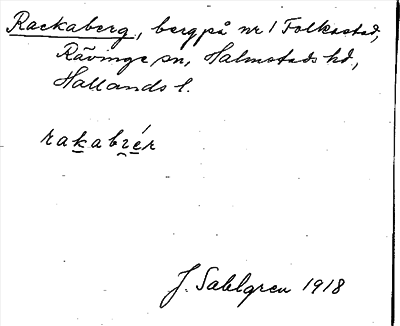 Rackaberg, berg på nr 1 Folkastad,
Rävinge sn, Halmstads hd,
Hallands l.
J. Sahlgren 1918